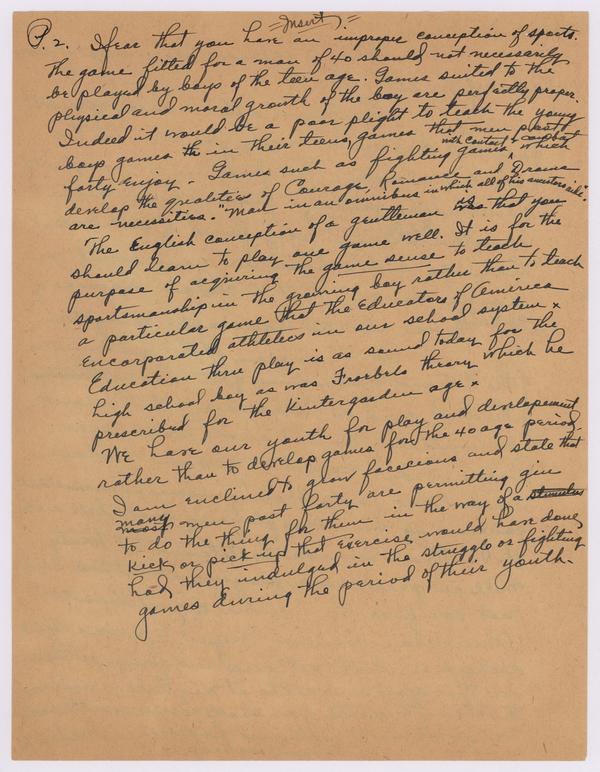 =Insert=
P. 2. I fear that you have an improper conception of sports.
The game fitted for a man of 40 should not necessarily
be played by boys of the teen age. Games suited to the
physical and moral growth of the boy are perfectly proper.
Indeed it would be a poor plight to teach the young
boys games th in their teens, games that men past
forty enjoy - Games such as fighting games with contact & combat which
develop the qualities of Courage, Romance and Drama
are necessities. "Man in an omnibus in which all of his ancestors ride".
The English conception of a gentleman is was that you
should learn to play one game well. It is for the
purpose of acquiring the game sense to teach
sportsmanship in the growing boy rather than to teach
a particular game that the Educators of America
encorporated athletics in our school system x
Education thru play is as sound today for the
high school boy as was Froebels theory which he
prescribed for the Kintergarden age x
We have our youth for play and developement
rather than to develop games for the 40 age period.
I am enclined to grow facecious and state that
many most men past forty are permitting gin
to do the thing for them in the way of a stimulus
Kick or pick-up that exercise would have done,
had they indulged in the struggle or fighting
games during the period of their youth-